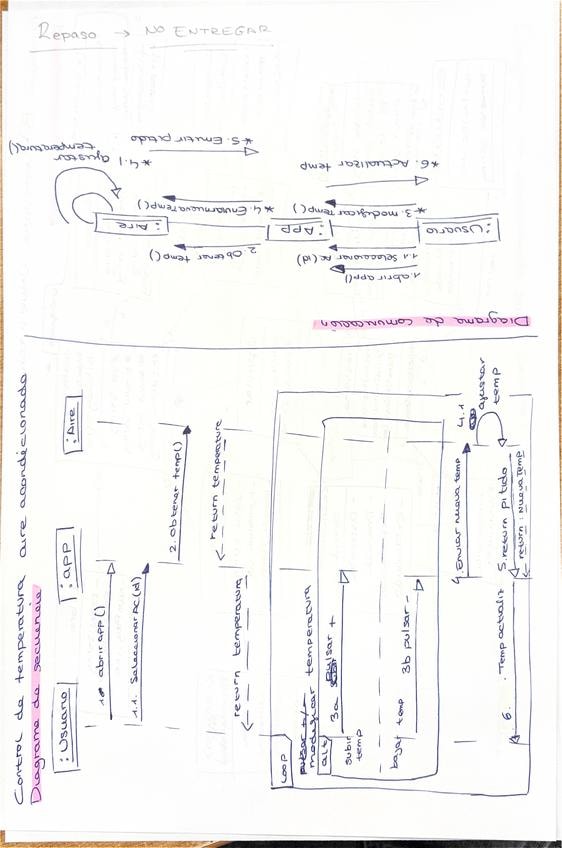 Repaso → NO ENTREGAR
Diagrama de comunicación
:Usuario
:App
:Aire
1. abrir app()
1.1. Seleccionar AC(id)
2. Obtener temp()
*3. modificar temp()
*4. Enviar nueva temp()
*4.1 ajustar
temperatura()
*5. Emitir pitido
*6. Actualizar temp
Control de temperatura aire acondicionado
Diagrama de secuencia
:Usuario
:app
:Aire
1. abrir app()
1.1. Seleccionar AC(id)
2. Obtener temp()
return temperature
return temperatura
Loop
pulsar +/-
modificar temperatura
alt
subir
temp
3a pulsar +
bajar temp
3b pulsar -
4. Enviar nueva temp
4.1
ajustar
temp
5. return pitido
return: nueva temp
6. Temp actualiz